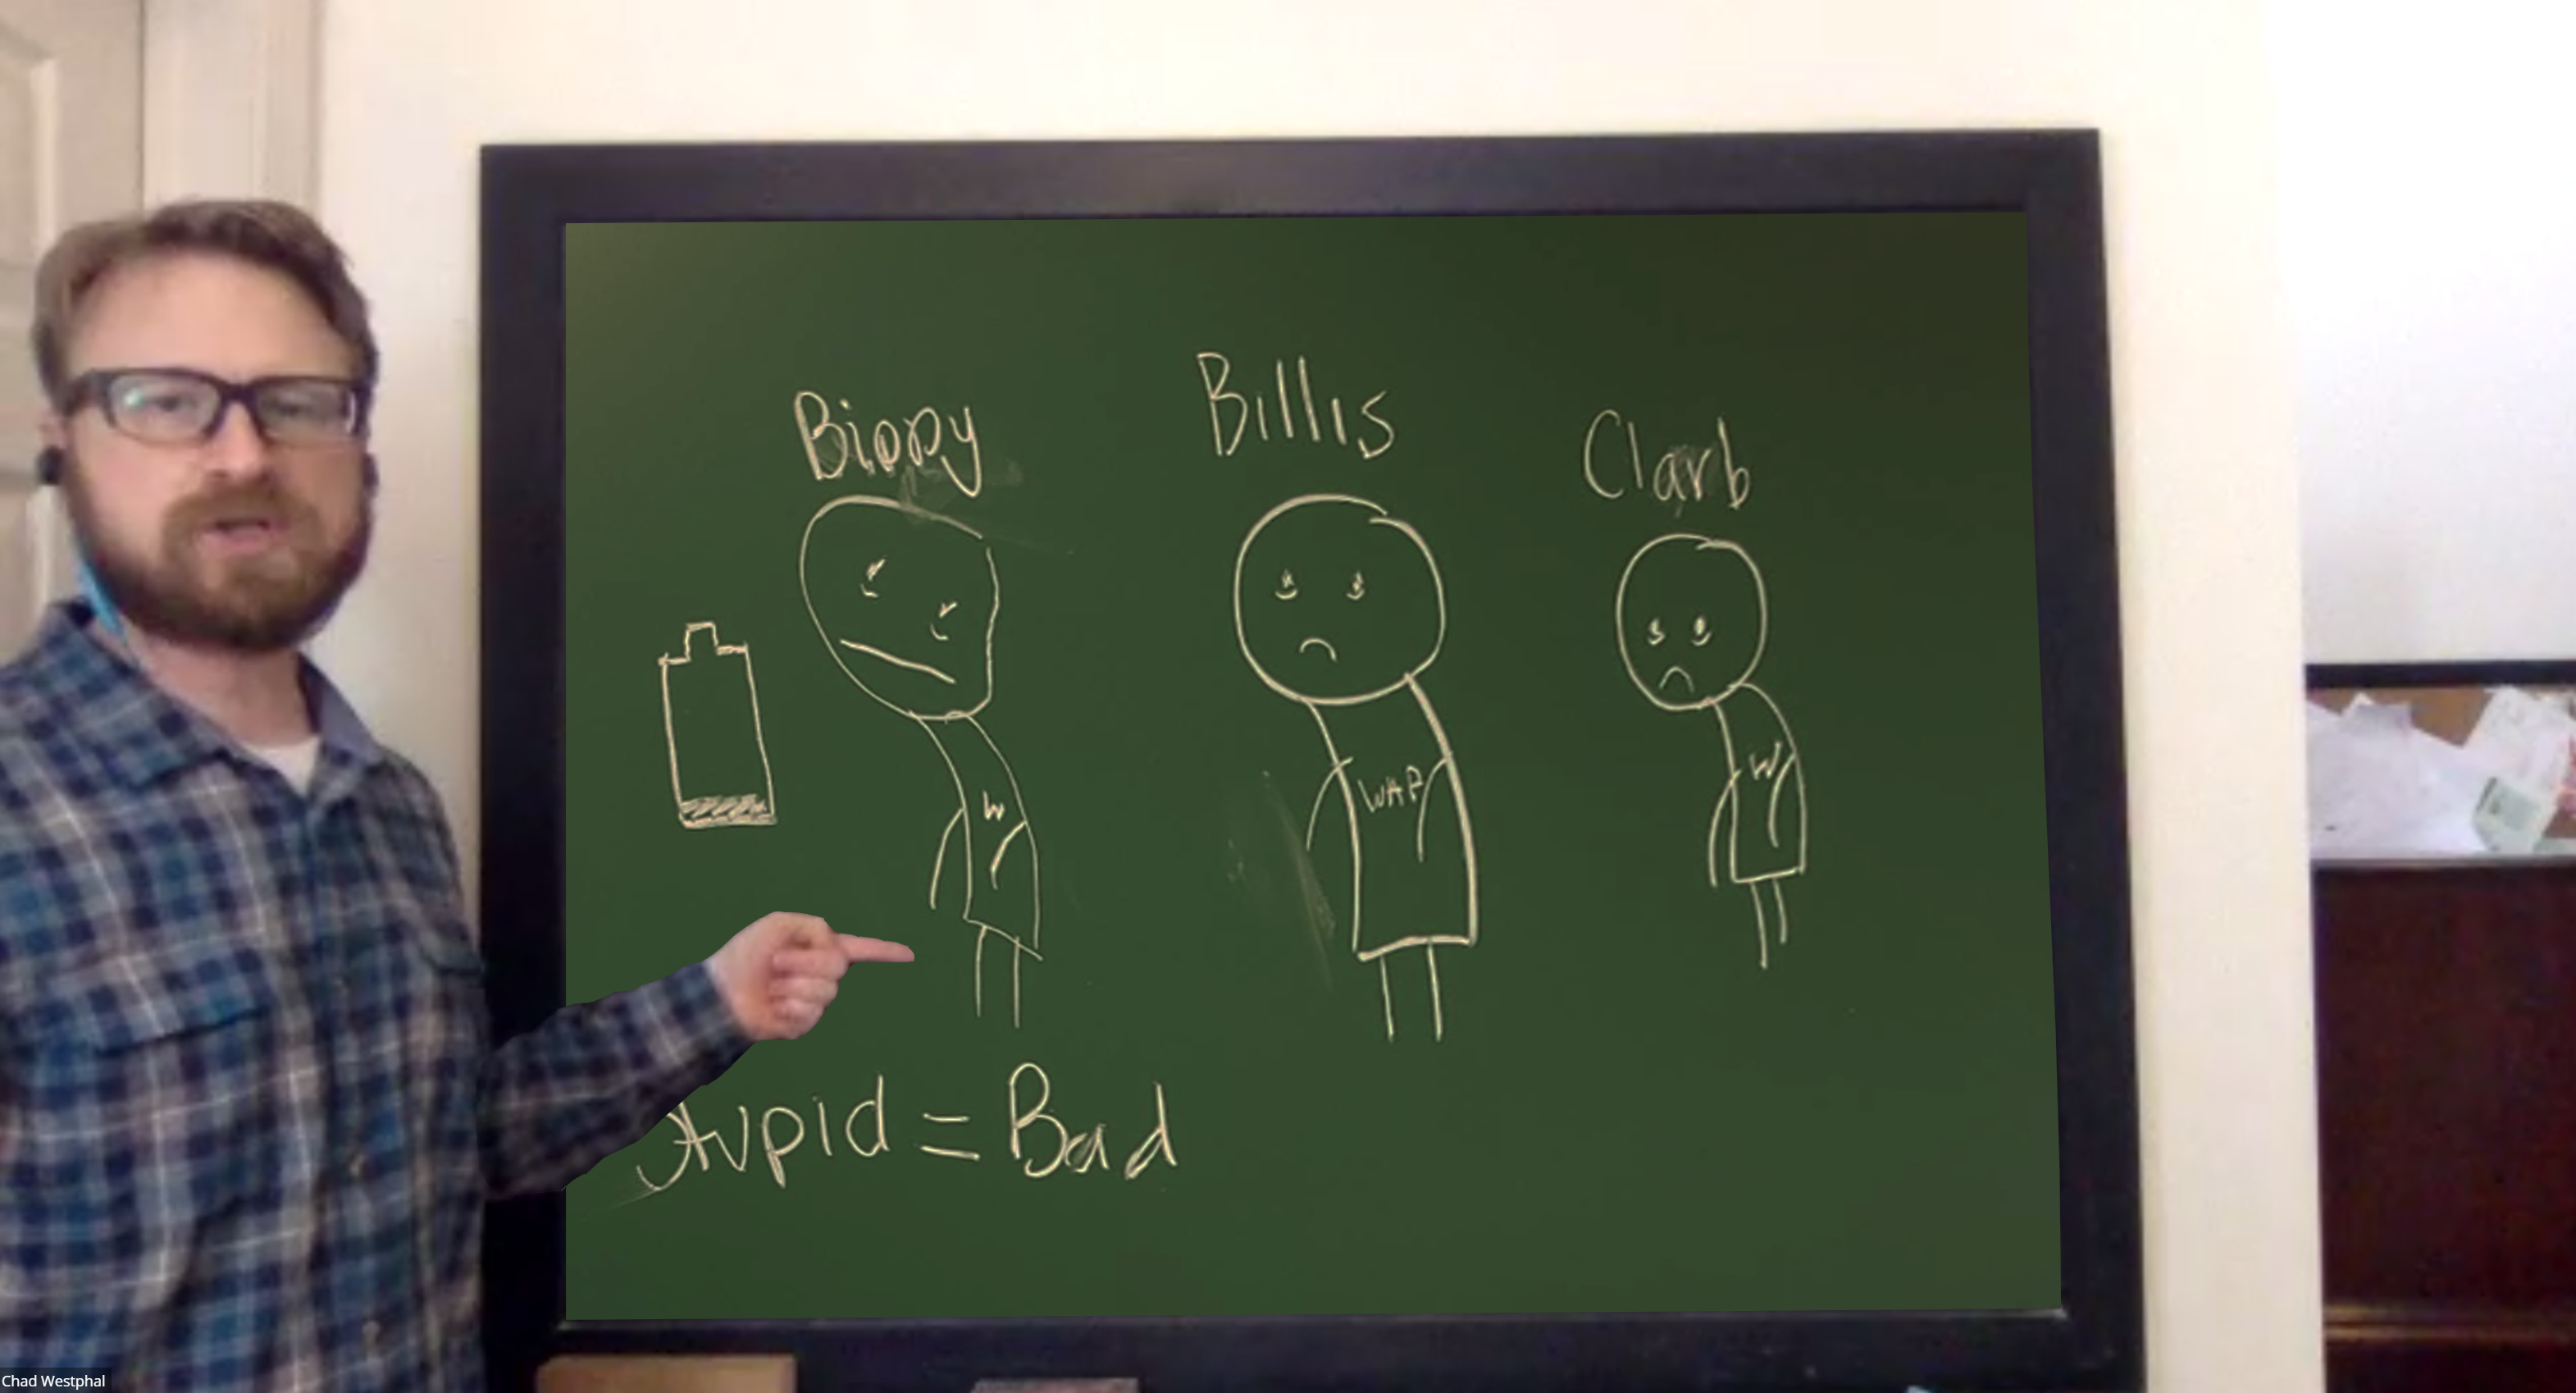 Bippy
Billis
Clarb
W
WAP
W
Stupid = Bad
Chad Westphal